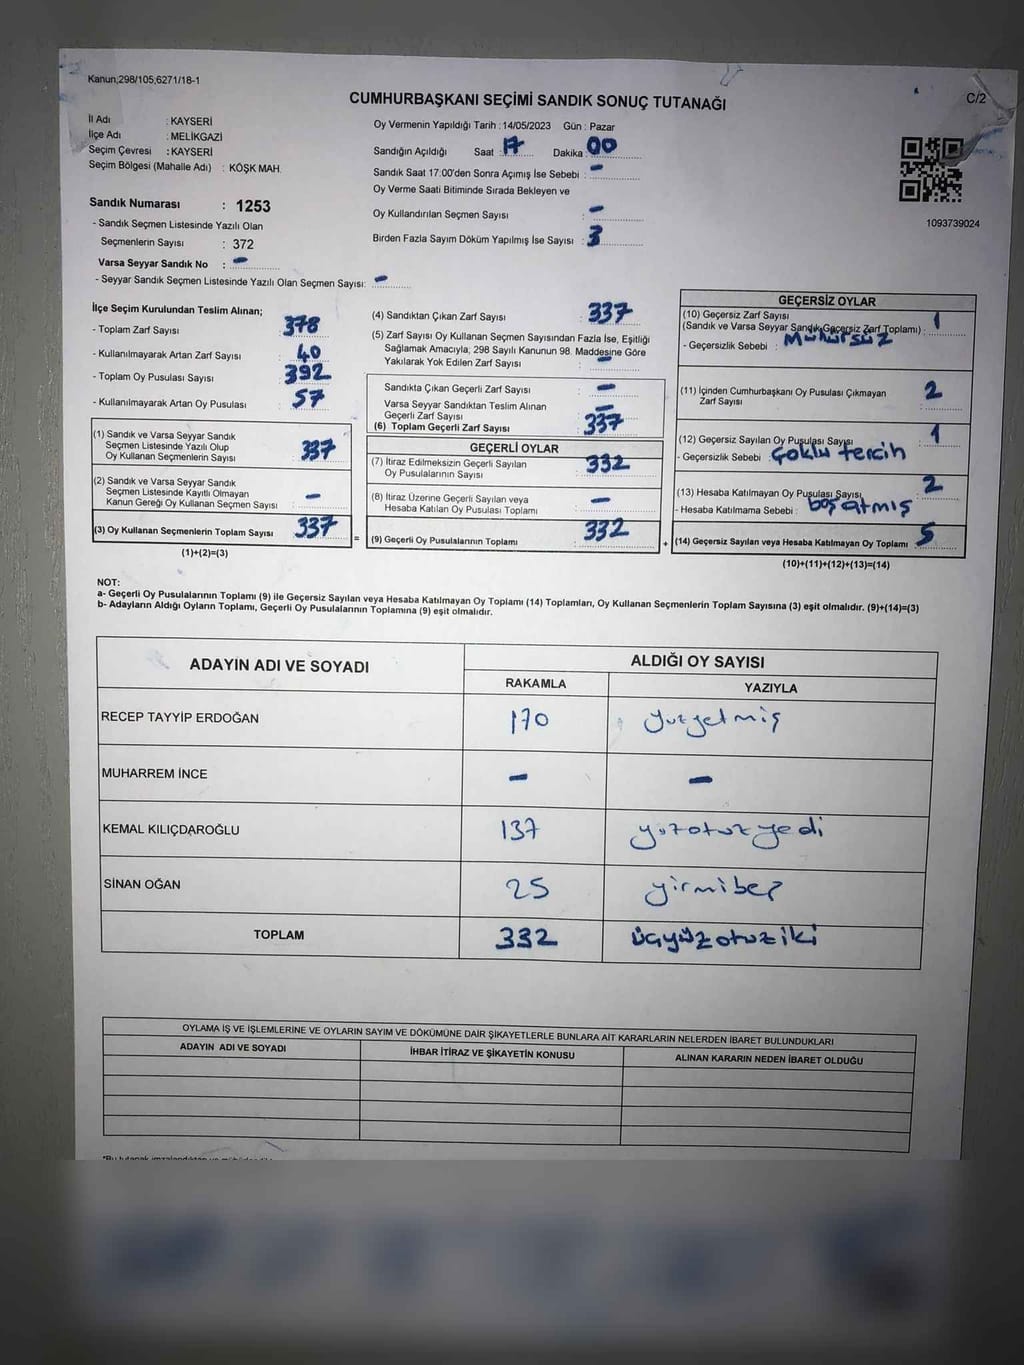 Kanun;298/105,6271/18-1
C/2
CUMHURBAŞKANI SEÇİMİ SANDIK SONUÇ TUTANAĞI
İl Adı : KAYSERİ
İlçe Adı : MELİKGAZİ
Seçim Çevresi : KAYSERİ
Seçim Bölgesi (Mahalle Adı) : KÖŞK MAH.
Sandık Numarası : 1253
- Sandık Seçmen Listesinde Yazılı Olan
Seçmenlerin Sayısı : 372
Varsa Seyyar Sandık No : -
- Seyyar Sandık Seçmen Listesinde Yazılı Olan Seçmen Sayısı: -
Oy Vermenin Yapıldığı Tarih : 14/05/2023 Gün : Pazar
Sandığın Açıldığı Saat : 17 Dakika : 00
Sandık Saat 17.00'den Sonra Açımış İse Sebebi : -
Oy Verme Saati Bitiminde Sırada Bekleyen ve
Oy Kullandırılan Seçmen Sayısı : -
Birden Fazla Sayım Döküm Yapılmış İse Sayısı : 3
1093739024
İlçe Seçim Kurulundan Teslim Alınan;
- Toplam Zarf Sayısı : 378
- Kullanılmayarak Artan Zarf Sayısı : 40
- Toplam Oy Pusulası Sayısı : 392
- Kullanılmayarak Artan Oy Pusulası : 57
(1) Sandık ve Varsa Seyyar Sandık
Seçmen Listesinde Yazılı Olup
Oy Kullanan Seçmenlerin Sayısı : 337
(2) Sandık ve Varsa Seyyar Sandık
Seçmen Listesinde Kayıtlı Olmayan
Kanun Gereği Oy Kullanan Seçmen Sayısı : -
(3) Oy Kullanan Seçmenlerin Toplam Sayısı : 337
(1)+(2)=(3)
=
(4) Sandıktan Çıkan Zarf Sayısı : 337
(5) Zarf Sayısı Oy Kullanan Seçmen Sayısından Fazla İse, Eşitliği
Sağlamak Amacıyla; 298 Sayılı Kanunun 98. Maddesine Göre
Yakılarak Yok Edilen Zarf Sayısı : -
Sandıkta Çıkan Geçerli Zarf Sayısı : -
Varsa Seyyar Sandıktan Teslim Alınan
Geçerli Zarf Sayısı : -
(6) Toplam Geçerli Zarf Sayısı : 337
GEÇERLİ OYLAR
(7) İtiraz Edilmeksizin Geçerli Sayılan
Oy Pusulalarının Sayısı : 332
(8) İtiraz Üzerine Geçerli Sayılan veya
Hesaba Katılan Oy Pusulası Toplamı : -
(9) Geçerli Oy Pusulalarının Toplamı : 332
+
GEÇERSİZ OYLAR
(10) Geçersiz Zarf Sayısı
(Sandık ve Varsa Seyyar Sandık Geçersiz Zarf Toplamı) : 1
- Geçersizlik Sebebi : Mühürsüz
(11) İçinden Cumhurbaşkanı Oy Pusulası Çıkmayan
Zarf Sayısı : 2
(12) Geçersiz Sayılan Oy Pusulası Sayısı : 1
- Geçersizlik Sebebi : Çoklu tercih
(13) Hesaba Katılmayan Oy Pusulası Sayısı : 2
- Hesaba Katılmama Sebebi : boş atmış
(14) Geçersiz Sayılan veya Hesaba Katılmayan Oy Toplamı : 5
(10)+(11)+(12)+(13)=(14)
NOT:
a- Geçerli Oy Pusulalarının Toplamı (9) ile Geçersiz Sayılan veya Hesaba Katılmayan Oy Toplamı (14) Toplamları, Oy Kullanan Seçmenlerin Toplam Sayısına (3) eşit olmalıdır. (9)+(14)=(3)
b- Adayların Aldığı Oyların Toplamı, Geçerli Oy Pusulalarının Toplamına (9) eşit olmalıdır.
ADAYIN ADI VE SOYADI ALDIĞI OY SAYISI
RAKAMLA YAZIYLA
RECEP TAYYİP ERDOĞAN 170 yüzyetmiş
MUHARREM İNCE - -
KEMAL KILIÇDAROĞLU 137 yüzotuzyedi
SİNAN OĞAN 25 yirmibeş
TOPLAM 332 üçyüzotuziki
OYLAMA İŞ VE İŞLEMLERİNE VE OYLARIN SAYIM VE DÖKÜMÜNE DAİR ŞİKAYETLERLE BUNLARA AİT KARARLARIN NELERDEN İBARET BULUNDUKLARI
ADAYIN ADI VE SOYADI İHBAR İTİRAZ VE ŞİKAYETİN KONUSU ALINAN KARARIN NEDEN İBARET OLDUĞU